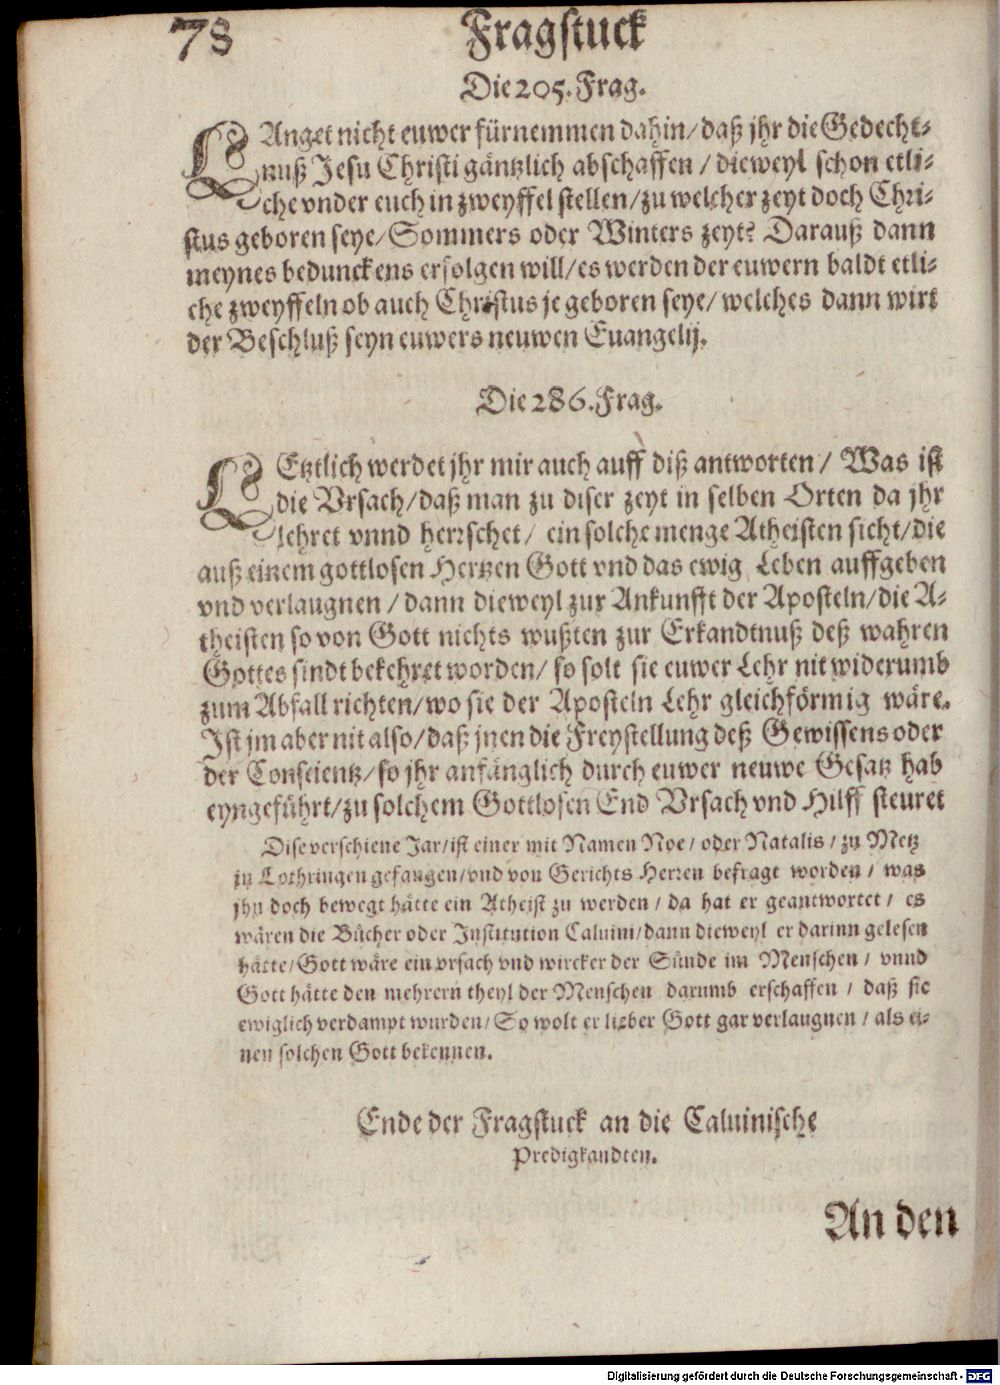 78
Fragstuck
Die 205. Frag.
LAnget nicht euwer fürnemmen dahin/ daß jhr die Gedecht-
nuß Jesu Christi gäntzlich abschaffen / dieweyl schon etli-
che vnder euch in zweyffel stellen/ zu welcher zeyt doch Chri-
stus geboren seye/ Sommers oder Winters zeyt? Darauß dann
meynes bedunckens erfolgen will/ es werden der euwern baldt etli-
che zweyffeln ob auch Christus je geboren seye/ welches dann wirt
der Beschluß seyn euwers neuwen Euangelij.
Die 286. Frag.
LEtztlich werdet jhr mir auch auff diß antworten / Was ist
die Vrsach/ daß man zu diser zeyt in selben Orten da jhr
lehret vnnd herrschet / ein solche menge Atheisten sicht/ die
auß einem gottlosen Hertzen Gott vnd das ewig Leben auffgeben
vnd verlaugnen / dann dieweyl zur Ankunfft der Aposteln/ die A-
theisten so von Gott nichts wußten zur Erkandtnuß deß wahren
Gottes sindt bekehret worden/ so solt sie euwer Lehr nit widerumb
zum Abfall richten/ wo sie der Aposteln Lehr gleichförmig wäre.
Ist jm aber nit also/ daß jnen die Freystellung deß Gewissens oder
der Conscientz/ so jhr anfänglich durch euwer neuwe Gesatz hab
eyngeführt/ zu solchem Gottlosen End Vrsach vnd Hilff steuret
Dise verschiene Jar/ ist einer mit Namen Noe / oder Natalis / zu Metz
zu Lothringen gefangen/ vnd von Gerichts Herren befragt worden / was
jhn doch bewegt hätte ein Atheist zu werden / da hat er geantwortet / es
wären die Bücher oder Institution Caluini/ dann dieweyl er darinn gelesen
hätte/ Gott wäre ein vrsach vnd wircker der Sünde im Menschen / vnnd
Gott hätte den mehrern theyl der Menschen darumb erschaffen / daß sie
ewiglich verdampt wurden/ So wolt er lieber Gott gar verlaugnen / als ei-
nen solchen Gott bekennen.
Ende der Fragstuck an die Caluinische
Predigkandten.
An den
Digitalisierung gefördert durch die Deutsche Forschungsgemeinschaft - DFG